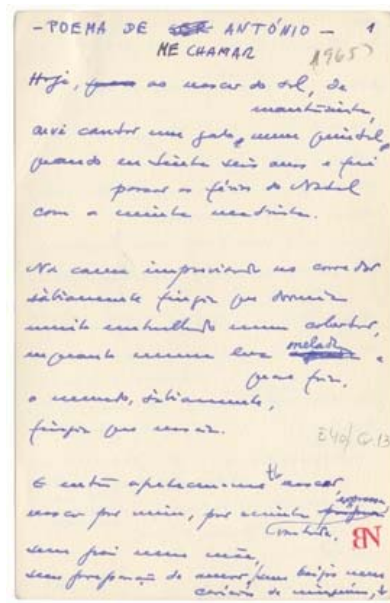 - POEMA DE ANTÓNIO - 1
ME CHAMAR 1965
Hoje, ao nascer do sol, de
manhãzinha,
ouvi cantar um galo, num quintal,
quando eu tinha seis anos e fui
passar as férias do Natal
com a minha madrinha.
Na cama improvisada no corredor
sàbiamente fingia que dormia
muito embrulhado num cobertor,
enquanto numa luz melada e
quase fria,
o mundo, sàbiamente,
fingia que nascia.
E40/Cx.13
E então apeteceu-me tb nascer,
nascer por mim, por minha expressa
vontade.
BN
sem pai nem mãe,
sem preparação de amor, sem beijos nem
carícias de ninguém,